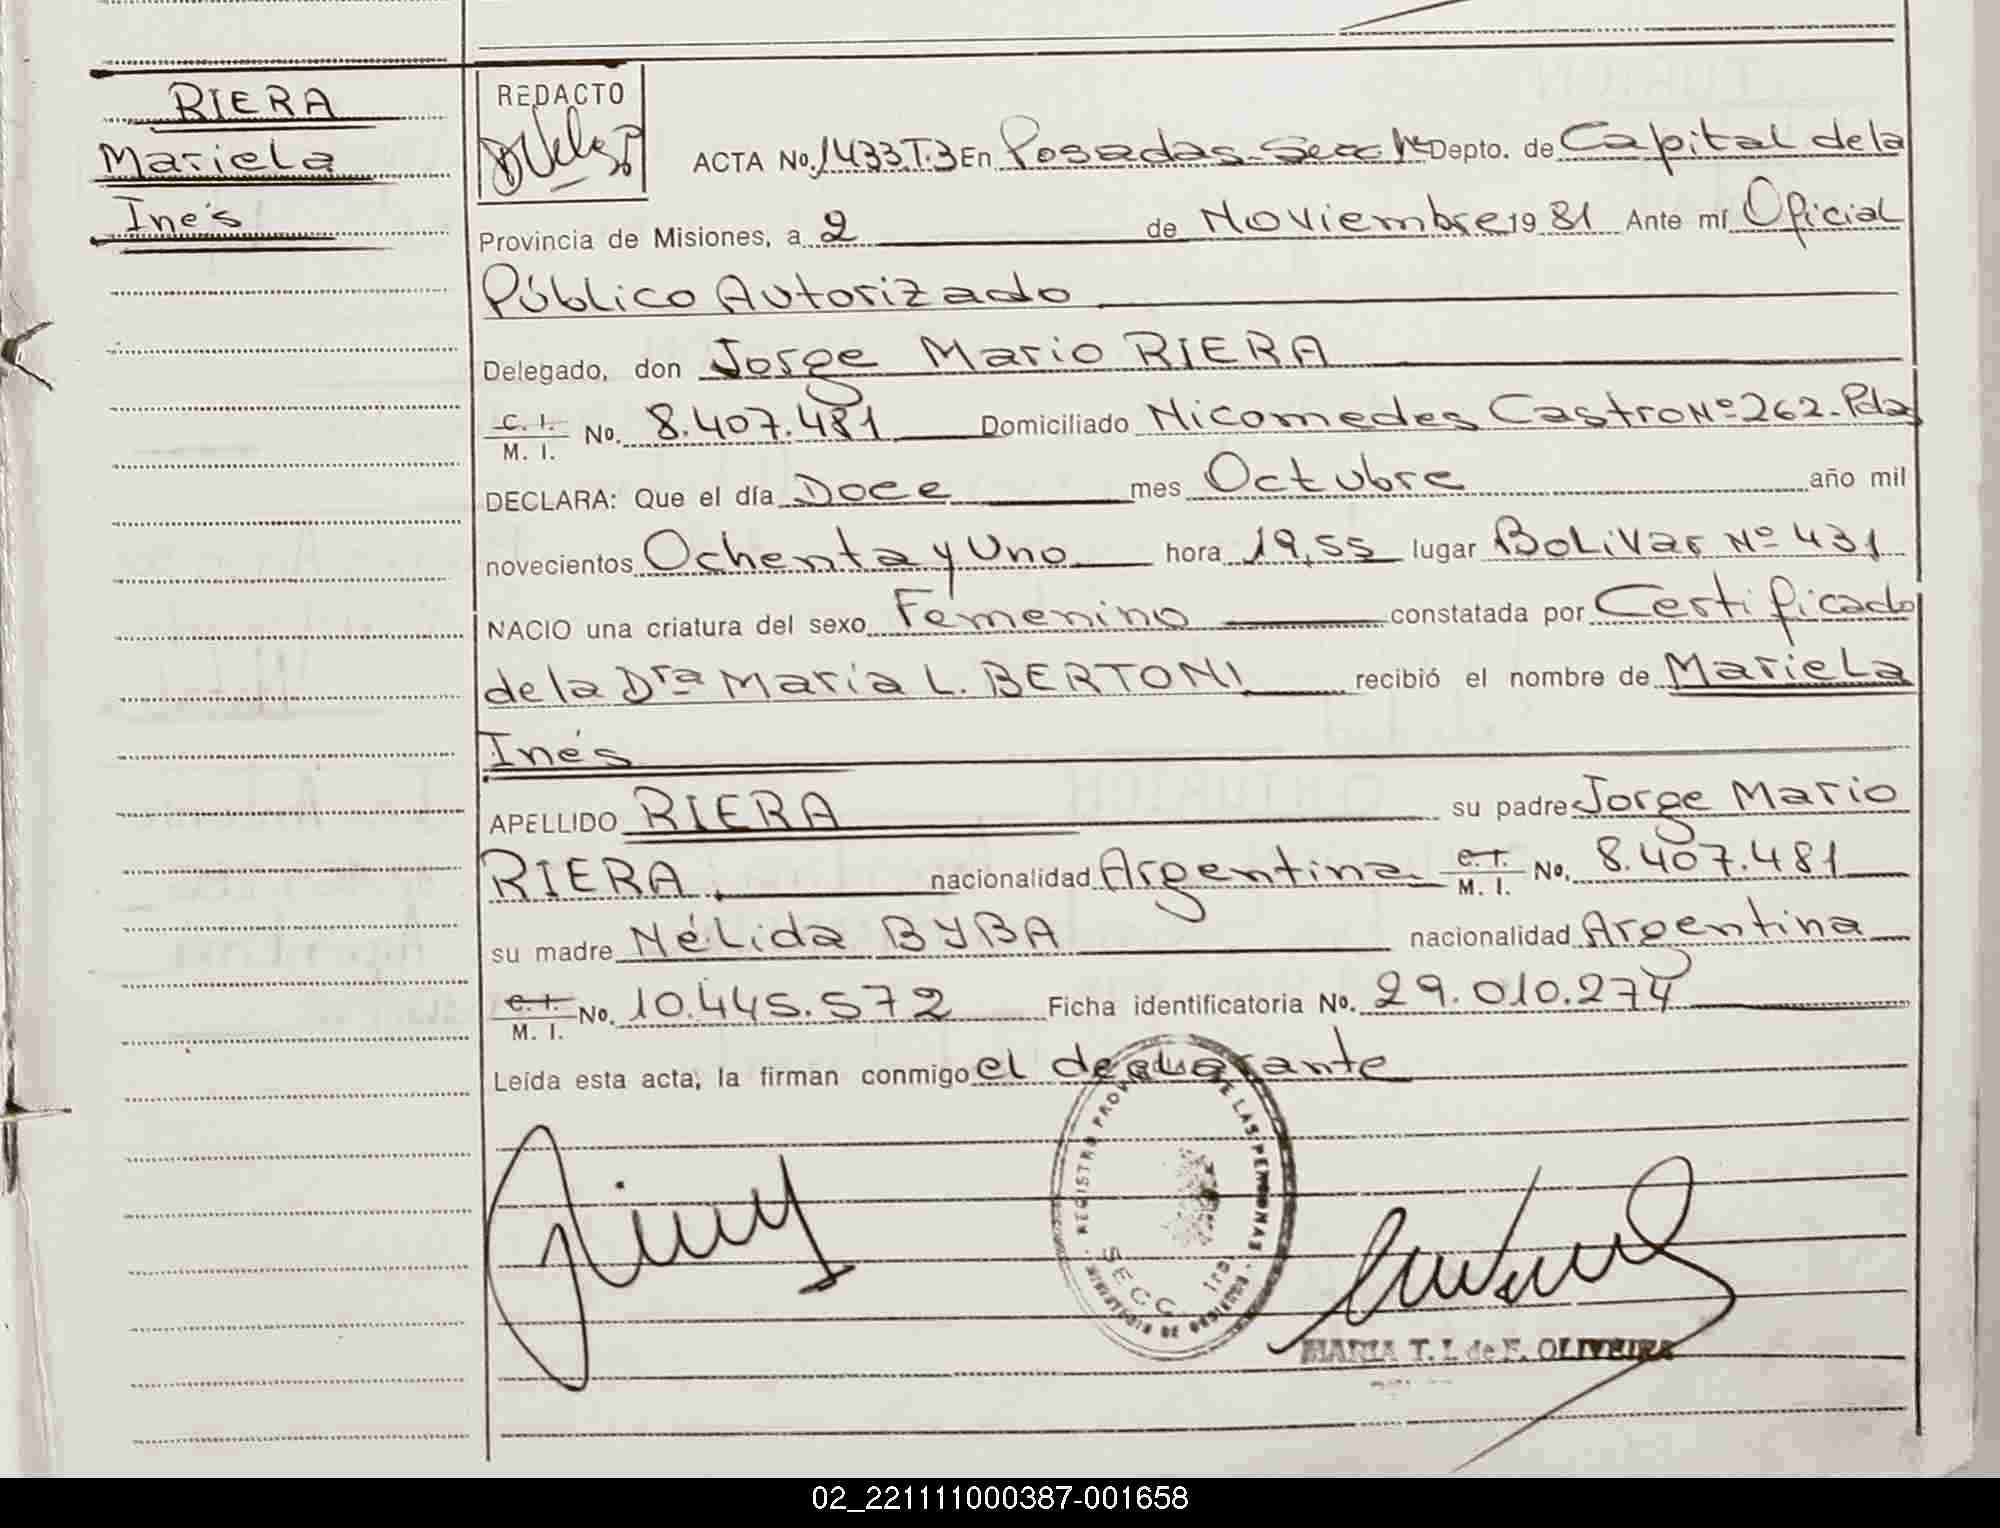 RIERA
Mariela
Inés
REDACTO
ACTA No. 1433 T.3 En Posadas-Secc 1ª Depto. de Capital de la
Provincia de Misiones, a 2 de Noviembre 1981 Ante mí Oficial
Público Autorizado
Delegado, don Jorge Mario RIERA
C. I. M. I. No. 8.407.481 Domiciliado Nicomedes Castro Nº 262-Pdas
DECLARA: Que el día Doce mes Octubre año mil
novecientos Ochenta y Uno hora 19,55 lugar Bolivar Nº 431
NACIO una criatura del sexo Femenino constatada por Certificado
de la Dra Maria L. BERTONI recibió el nombre de Mariela
Inés
APELLIDO RIERA su padre Jorge Mario
RIERA nacionalidad Argentina C. I. M. I. No. 8.407.481
su madre Nélida BYBA nacionalidad Argentina
C. I. M. I. No. 10.445.572 Ficha identificatoria No. 29.010.274
Leída esta acta, la firman conmigo el declarante
REGISTRO PROV DE LAS PERSONAS
SECC 1ra
MINISTERIO DE GOBIERNO
MARIA T. I. de F. OLIVEIRA
02_221111000387-001658